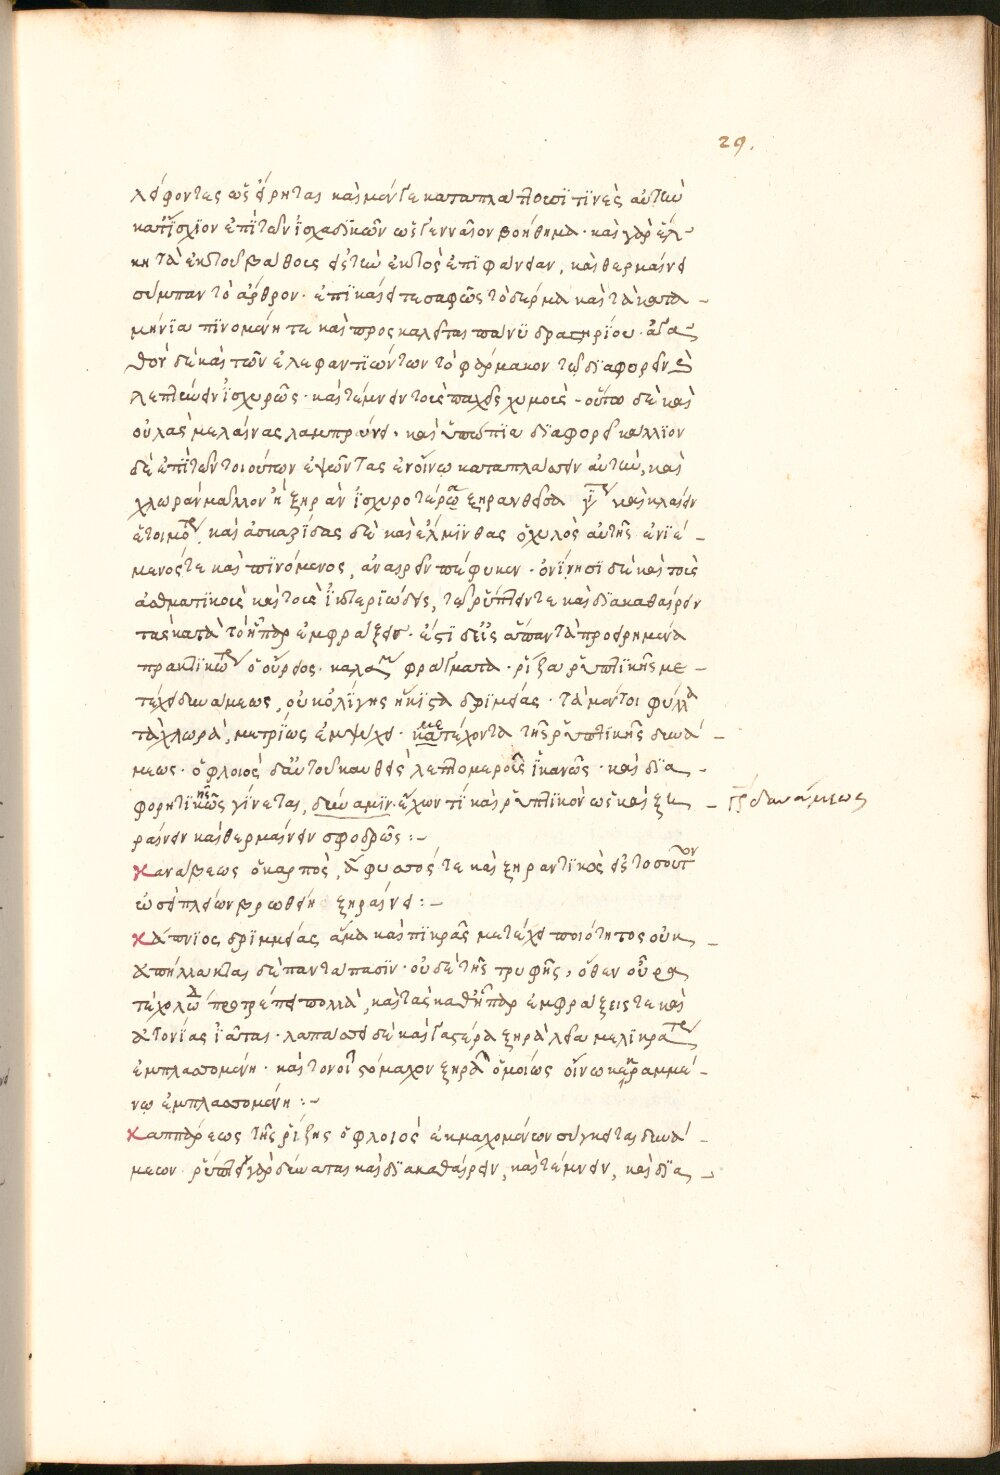 29.
λείφονται ὡς εἴρηται καὶ μέντοι καταπλάττουσί τινες αὐτὴν
κατ' ἰσχίον ἐπὶ τῶν ἰσχιαδικῶν ὡς γενναῖον βοήθημα· καὶ γὰρ ἕλ
κει τὰ ἐκ τοῦ βάθους εἰς τὴν ἐκτὸς ἐπιφάνειαν, καὶ θερμαίνει
σύμπαν τὸ ἄρθρον· ἐπικαίει τε σαφῶς τὸ δέρμα καὶ τὰ κατα
μήνια πινομένη τε καὶ προσ πάνυ δραστηρίου· ἀγα
θὸν δὲ καὶ τῶν ἐλεφαντιώντων τὸ φάρμακον τῷ διαφορεῖν
λεπτύνειν ἰσχυρῶς· καὶ τέμνειν τοὺς παχεῖς χυμούς· οὕτω δὲ καὶ
οὐλὰς μελαίνας λαμπρύνει· καὶ ὑπώπια διαφορεῖ κάλλιον
δὲ ἐπὶ τῶν τοιούτων ἑψῶντας ἐν οἴνῳ καταπλάσσειν αὐτὴν, καὶ
χλωρὰν μᾶλλον ἢ ξηρὰν ἰσχυροτέρα ξηρανθεῖσα καὶ καίειν
ἕτοιμος, καὶ ἀσκαρίδας δὲ καὶ ἕλμινθας ὁ χυλὸς αὐτῆς ἐνιέ
μενός τε καὶ πινόμενος, ἀναιρεῖν πέφυκεν· ὀνίνησι δὲ καὶ τοὺς
ἀσθματικοὺς καὶ τοὺς ἰκτεριώδεις, τῷ ῥύπτειν τε καὶ διακαθαίρειν
τὰς κατὰ τὸ ἧπαρ ἐμφράξεις· ἔστι δ' εἰς ἅπαντα προειρημένα
πρακτικώτερος ὁ οὖρειος· καλάμου φράγματα· ῥίζα ῥυπτικῆς με
τέχει δυνάμεως, οὐκ ὀλίγης ἥκιστα δριμείας· τὰ μέντοι φύλλα
τὰ χλωρὰ, μετρίως ἐμψύχει· κατέχοντα τῆς ῥυπτικῆς δυνά
με
μεως· ὁ φλοιὸς δ' αὐτοῦ καυθεὶς λεπτομεροῦς ἱκανῶς· καὶ δια
φορητικῶς γίνεται, δύναμιν· ἔχων τί καὶ ῥυπτικὸν ὡς καὶ ξη
ῆς
τῆς δυνάμεως
ραίνειν καὶ θερμαίνειν σφοδρῶς:–
καννάβεως ὁ καρπὸς, ἄφυσός τε καὶ ξηραντικὸς εἰς τοσοῦτον
ὡς εἰ πλείων βρωθείη ξηραίνει:–
κάπνιος δριμείας ἅμα καὶ πικρᾶς μετέχει ποιότητος οὐκ
ἀπήλλακται δὲ παντάπασιν· οὐδὲ τῆς τρυφῆς, ὅθεν οὖρα
τε χολώδη προτρέπει πολλὰ, καὶ τὰς καθ' ἧπαρ ἐμφράξεις τε καὶ
ἀτονίας ἰᾶται· λαπάσσει δὲ καὶ γαστέρα ξηρὰ λεία μελικράτῳ
ἐμπλασσομένη· καὶ τονοῖ στόμαχον ξηρὰ ὁμοίως οἴνῳ κεκραμμέ
νῳ ἐμπλασσομένη:–
καππάρεως τῆς ῥίζης ὁ φλοιὸς ἐκ μαχομένων σύγκειται δυνά
μεων· ῥύπτει γὰρ δύναται καὶ διακαθαίρειν, καὶ τέμνειν, καὶ δια